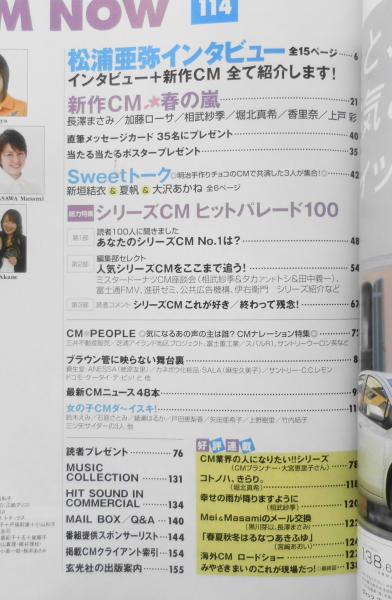 M NOW 114
松浦亜弥インタビュー 全15ページ 6
インタビュー+新作CM 全て紹介します!
新作CM★春の嵐 21
長澤まさみ/加藤ローサ/相武紗季/堀北真希/香里奈/上戸 彩
直筆メッセージカード 35名にプレゼント 40
当たる当たるポスタープレゼント 35
Sweetトーク ◎明治手作りチョコのCMで共演した3人が集合!◎ 42
新垣結衣&夏帆&大沢あかね 全6ページ
総力特集 シリーズCM ヒットパレード100
第1部 読者100人に聞きました
あなたのシリーズCM No.1は? 48
第2部 編集部セレクト
人気シリーズCMをここまで追う! 54
ミスタードーナツCM座談会(相武紗季&タカアンドトシ&田中義一)、
富士通FMV、進研ゼミ、公共広告機構、伊右衛門 シリーズ紹介など
第3部 読者コメント シリーズCM これが好き/終わって残念! 67
CM PEOPLE ◎気になるあの声の主は誰? CMナレーション特集◎
三井不動産販売/芝浦アイランド地区プロジェクト、富士重工業/スバルR1、サントリーウーロン茶など
ブラウン管に映らない舞台裏
資生堂・ANESSA(蛯原友里)/カネボウ化粧品・SALA(麻生久美子)/サントリー・C.C.レモン
最新CMニュース48本
女の子CMダ〜イスキ! 11
鈴木えみ/石原さとみ/綾瀬はるか/戸田恵梨香/矢田亜希子/上野樹里/竹内結子
三ツ矢サイダーの3人 他
読者プレゼント 76
MUSIC
COLLECTION 131
HIT SOUND IN
COMMERCIAL 134
MAIL BOX/Q&A 140
番組提供スポンサーリスト 144
掲載CMクライアント索引 154
玄光社の出版案内 155
好評連載
CM業界の人になりたい!!シリーズ 78
(CMプランナー・大宮恵里子さん)
コトノハ、きらり。
(堀北真希) 118
幸せの雨が降りますように
(相武紗季) 120
Mei&Masamiのメール交換
(黒川芽以、長澤まさみ)
「春夏秋冬はるなつあきふゆ」
(宮﨑あおい)
海外CM ロードショー
みやざきまいのこれが現場だっ!
ASAWA Masami
Akane
138,6